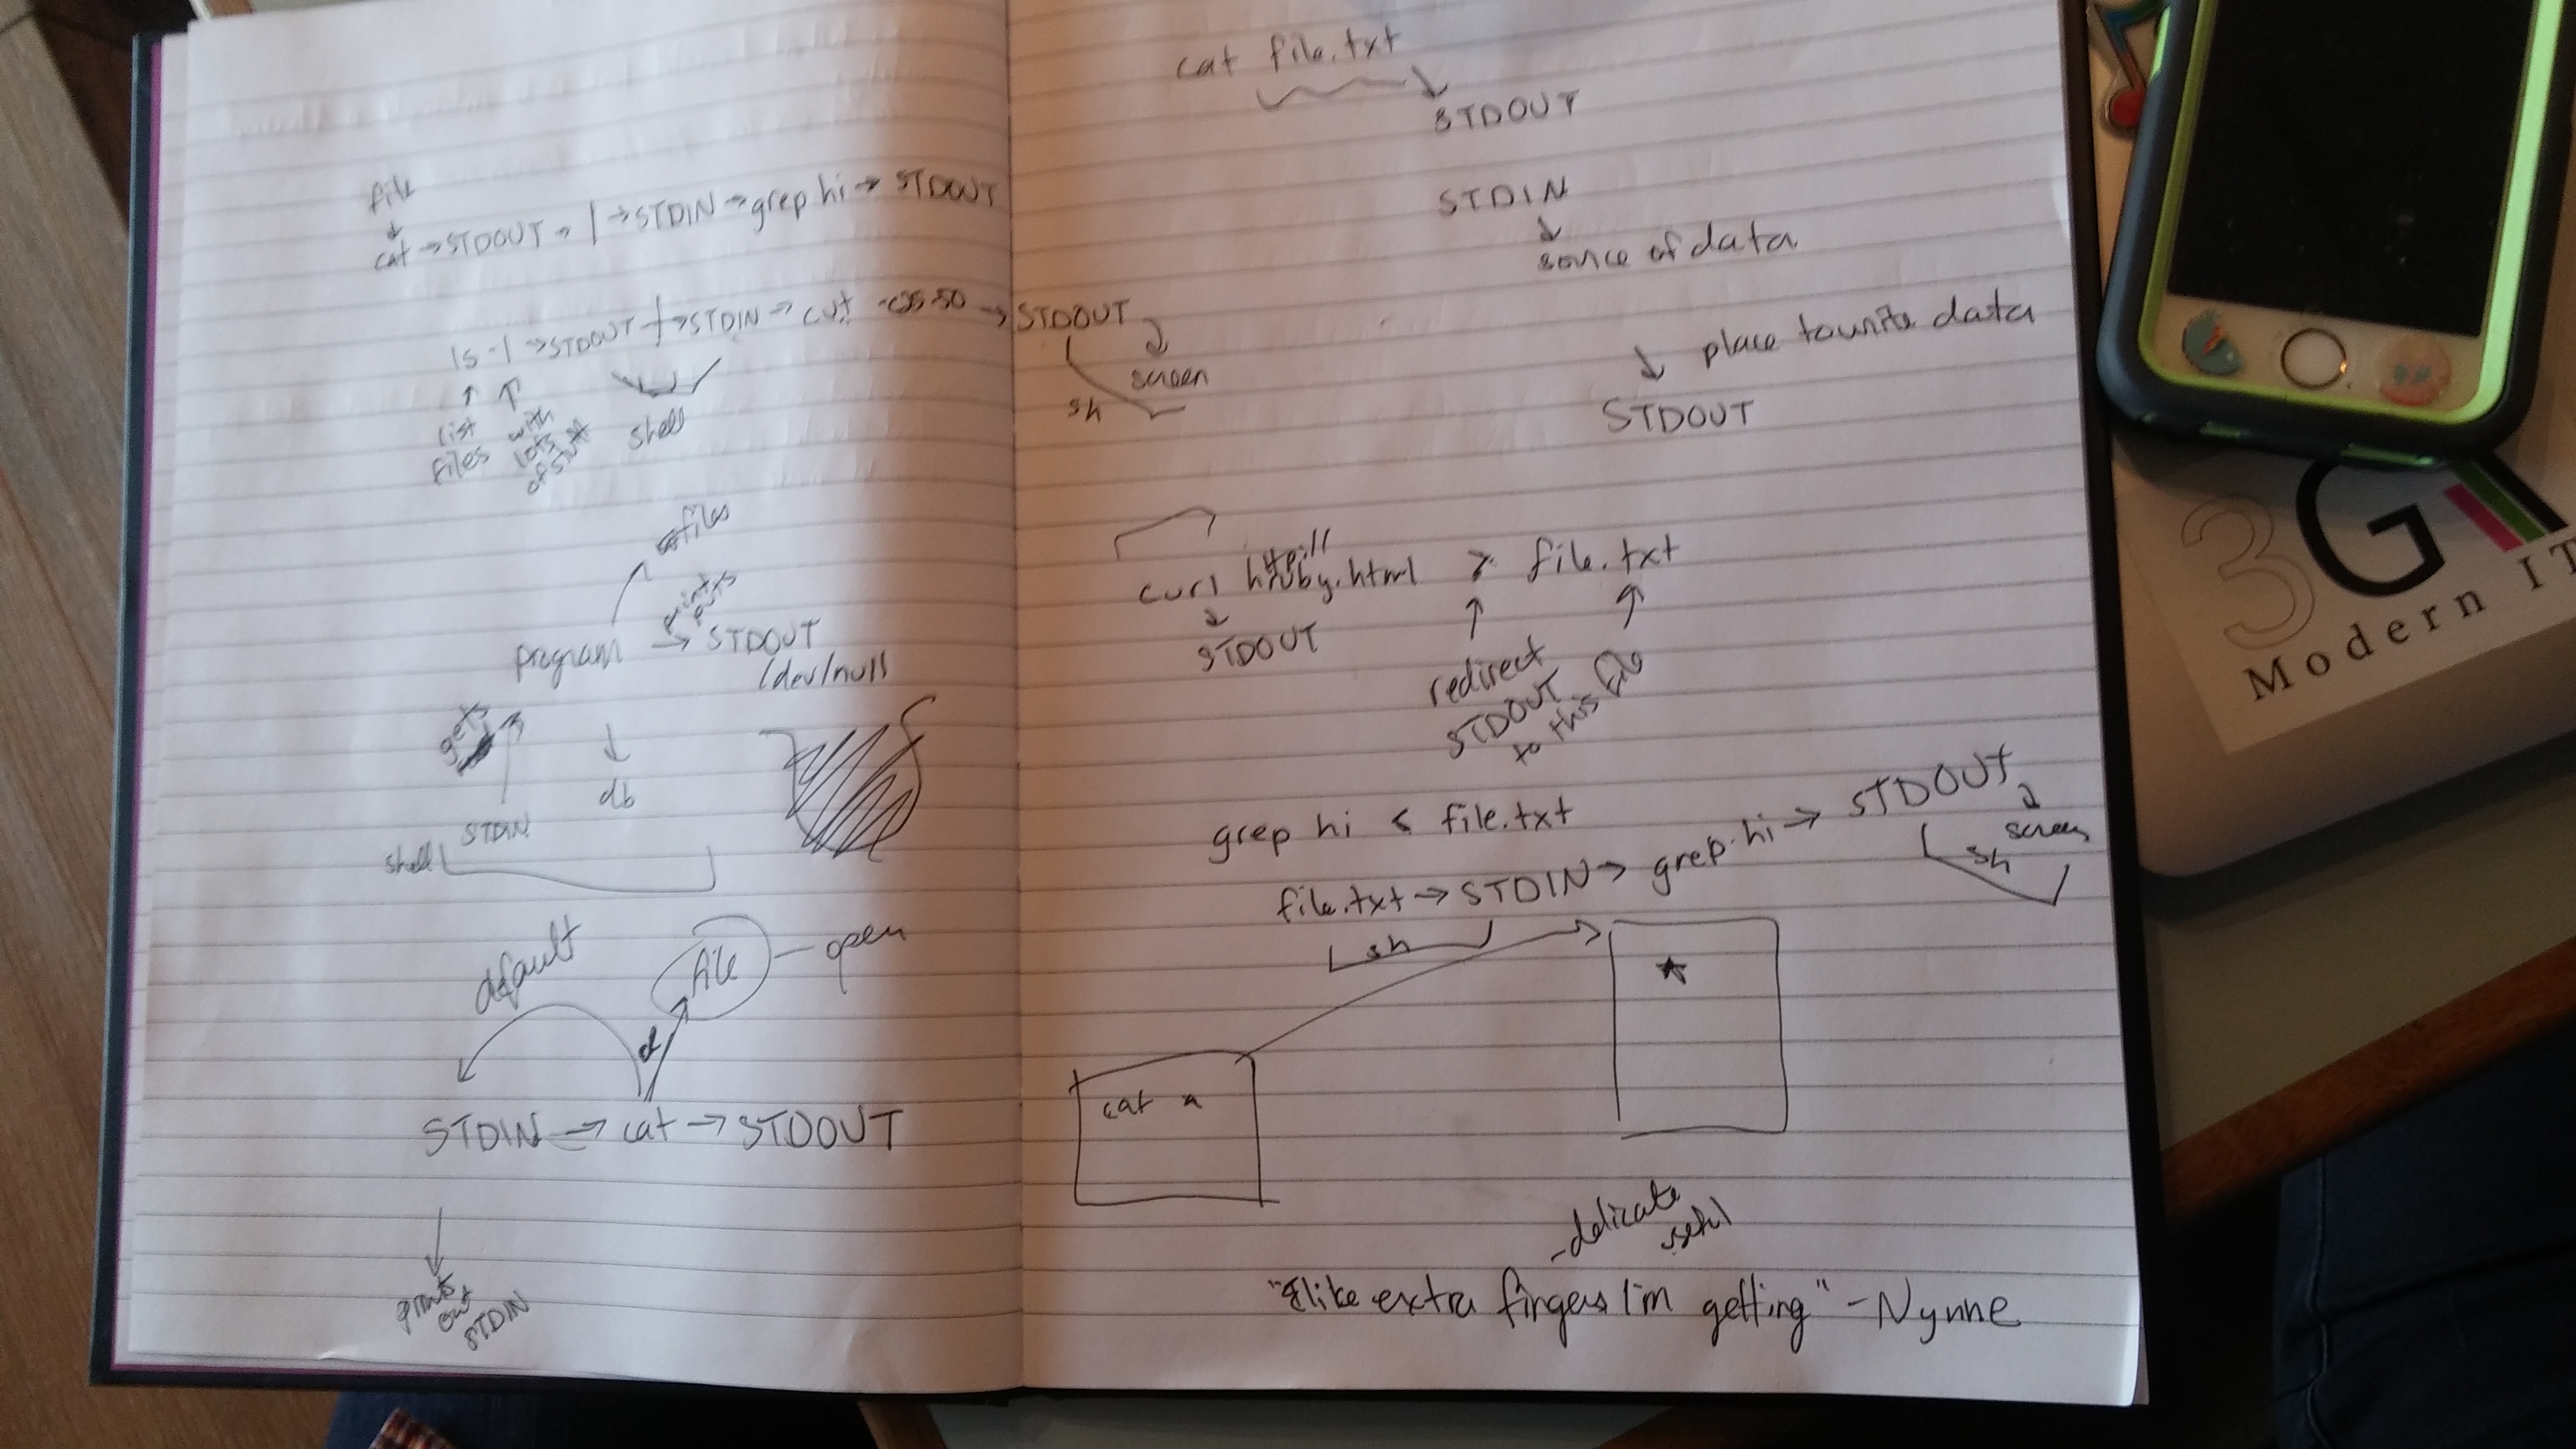 file
cat → STDOUT → | → STDIN → grep hi → STDOUT
ls -l → STDOUT → | → STDIN → cut -c5-50 → STDOUT
screen
sh
list
files
with
lots
of stuff
shell
files
prints
puts
program → STDOUT
/dev/null
gets
db
STDIN
shell
default
file - open
STDIN → cat → STDOUT
prints
out
STDIN
cat file.txt
STDOUT
STDIN
source of data
place to write data
STDOUT
http://
curl ruby.html > file.txt
STDOUT
redirect
STDOUT
to this file
grep hi < file.txt
file.txt → STDIN → grep hi → STDOUT
screen
sh
sh
cat *
*
- delicate
useful
"like extra fingers I'm getting" - Nynne
3G
Modern IT